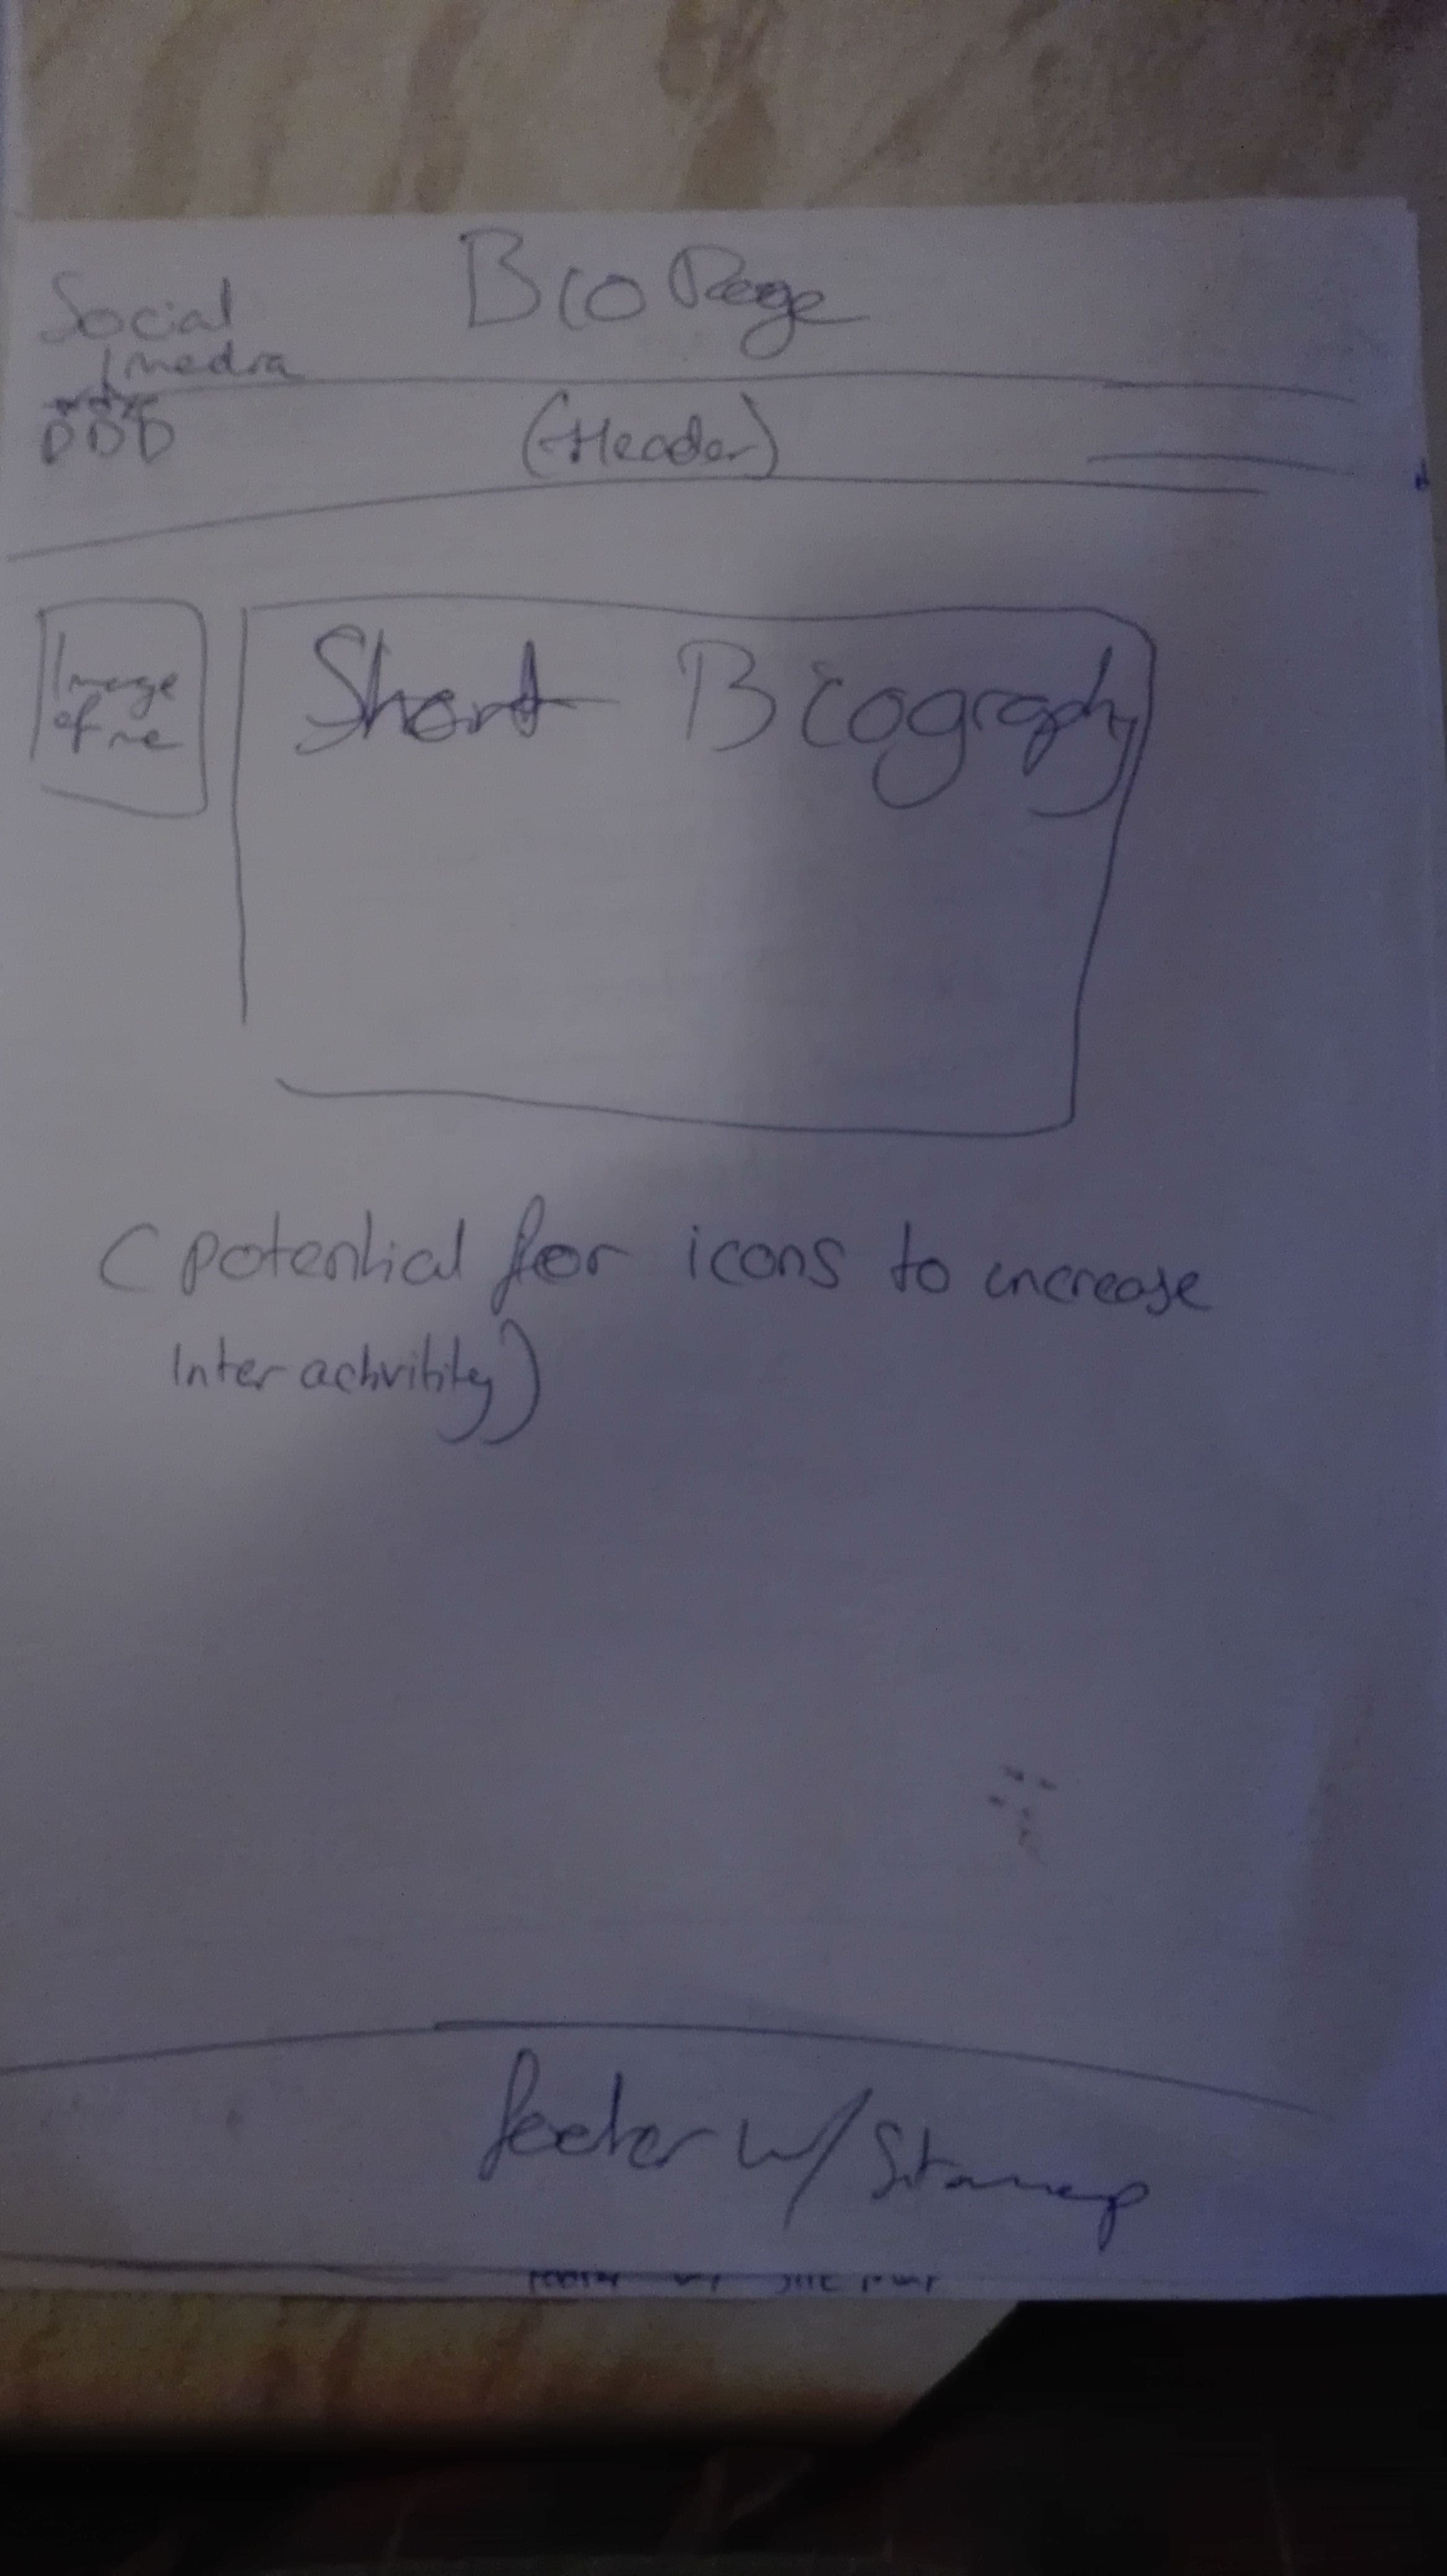 Bio Page
Social
media
(Header)
Image
of me
Short Biography
(potential for icons to increase
Interactivitity)
footer w/ Sitemap